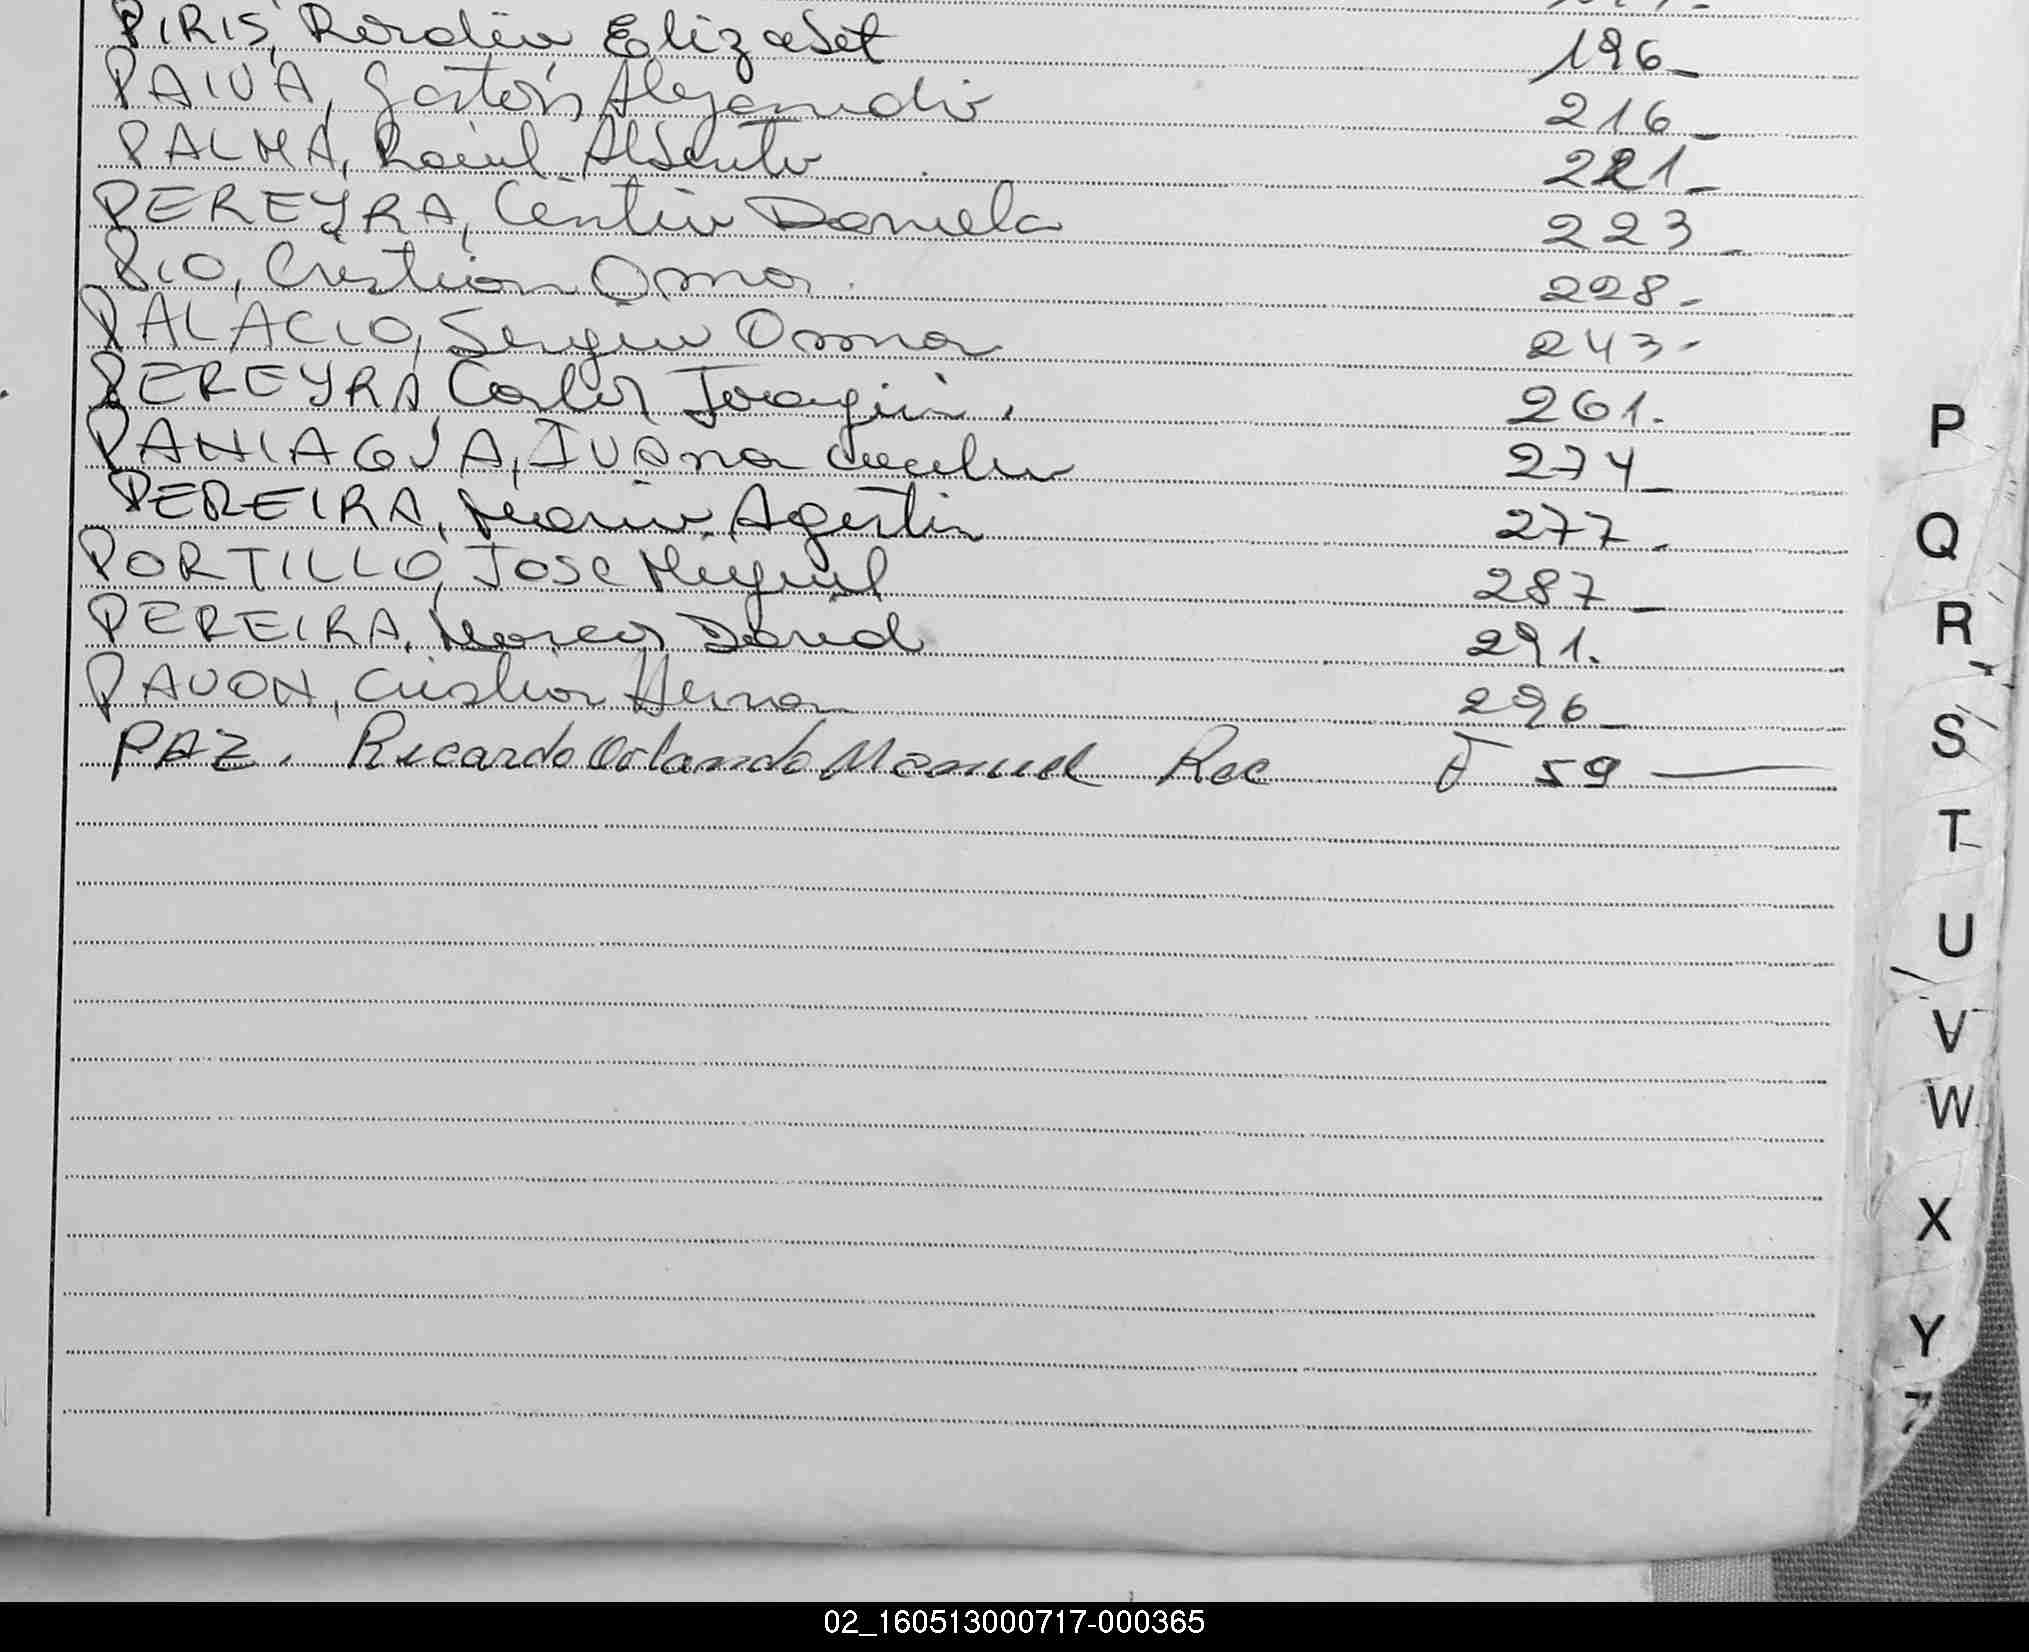 PIRIS, Elizabet 196_
PAIVA, Gastón Alejandro 216_
PALMA, Raúl Alberto 221_
PEREYRA, Cintia Daniela 223_
PIO, Cristian Omar. 228-
PALACIO, Sergio Omar 243-
PEREYRA, Carlos Joaquin. 261.
PANIAGUA, Ivana Cecilia 274_
PEREIRA, Mario Agustin 277.
PORTILLO, Jose Miguel 287_
PEREIRA, Marcos David 291.
PAVON, Cristian Hernan 296_
PAZ. Ricardo Orlando Manuel Rec F 59
P
Q
R
S
T
U
V
W
X
Y
Z
02_160513000717-000365